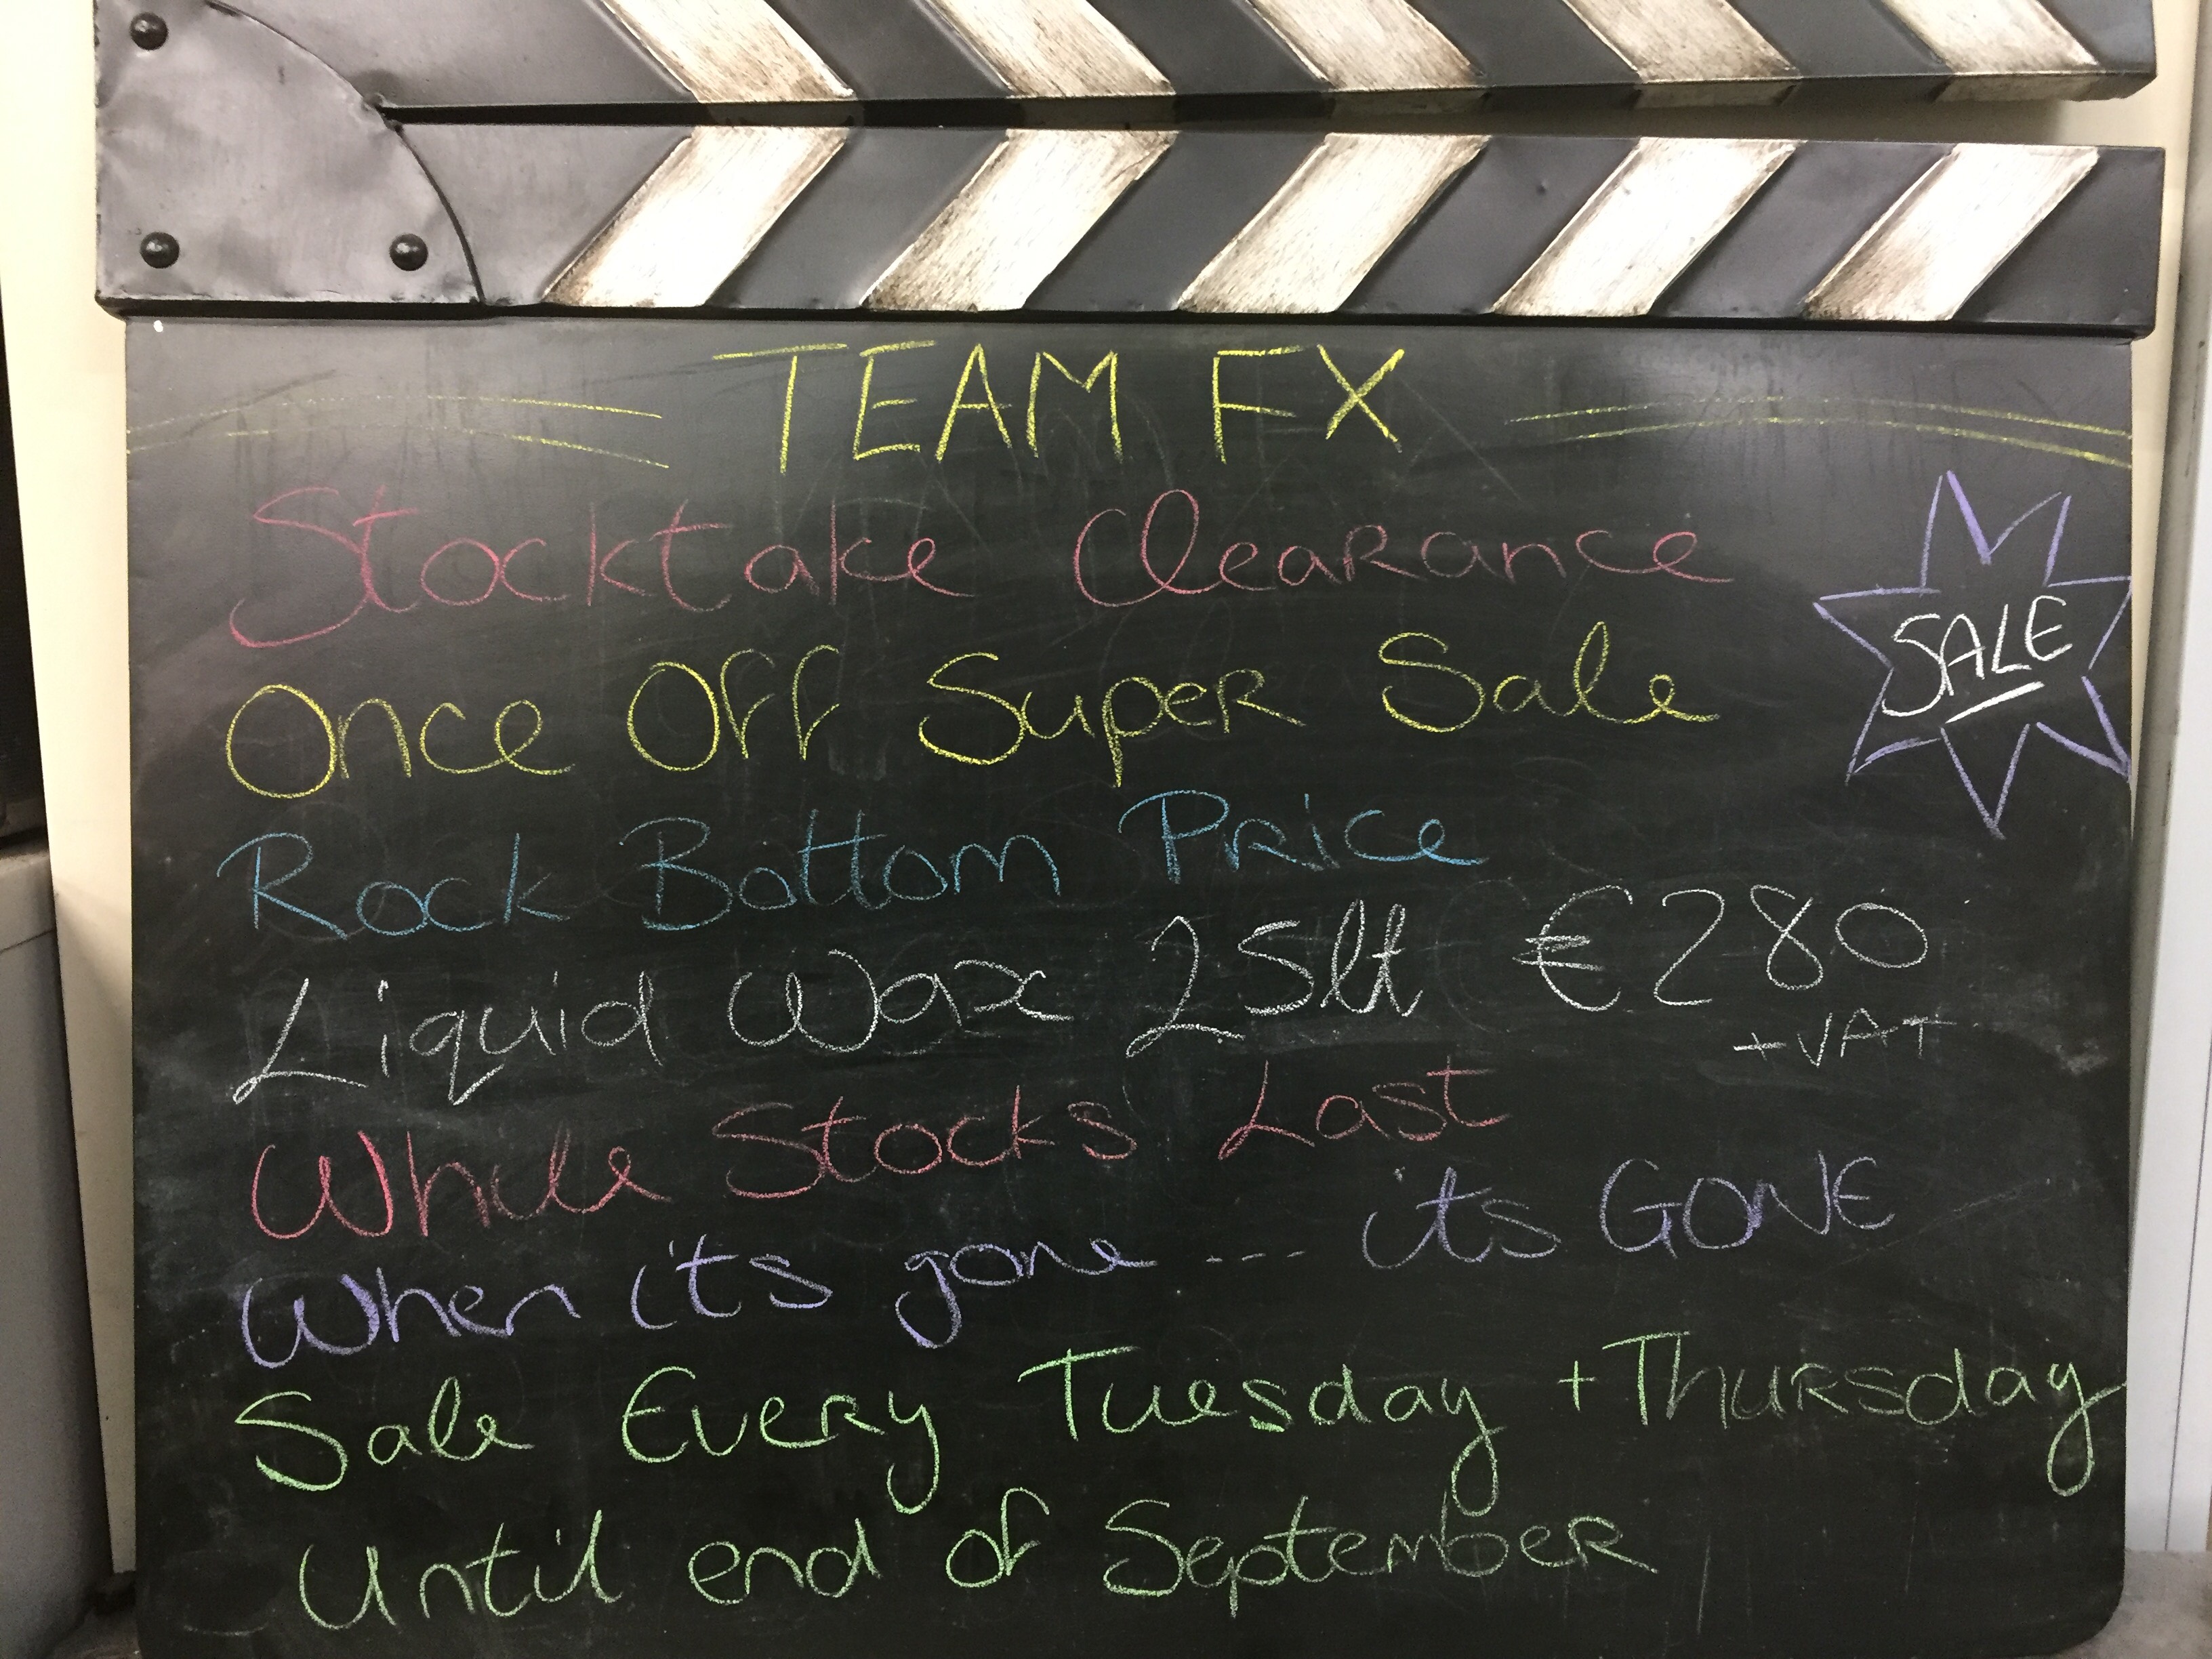 TEAM FX
Stocktake Clearance
Once Off Super Sale
SALE
Rock Bottom Price
Liquid Wax 25lt €280
+VAT
While Stocks Last
When it's gone --- it's GONE
Sale Every Tuesday + Thursday
Until end of September